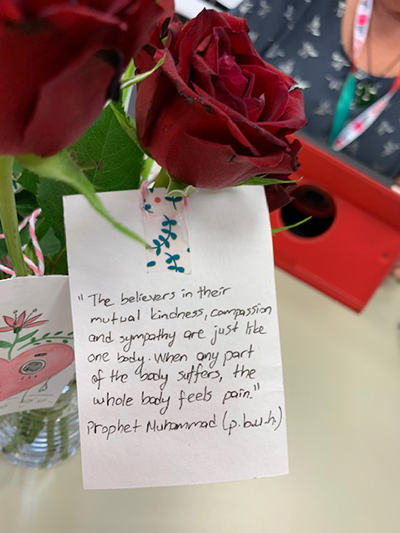 "The believers in their
mutual kindness, compassion
and sympathy are just like
one body. When any part
of the body suffers, the
whole body feels pain."
Prophet Muhammad (p.b.u.h.)